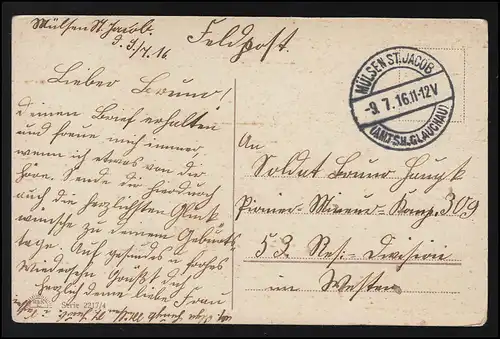 Mülsen St. Jacob.
d. 9./7. 16
Feldpost.
Lieber Bruno!
Deinen Brief erhalten
und freue mich immer
wenn ich etwas von dir
höre. Sende dir hierdurch
auch die herzlichsten Glück
wünsche zu deinem Geburts
tage. Auf gesundes u frohes
Wiedersehn Grüßt dich
herzlich deine liebe Frau
Serie 2217/4
MÜLSEN ST. JACOB
-9.7.16.11-12V
(AMTSH. GLAUCHAU)
An
Soldat Bruno Haupt
Pionier-Minenw-Komp. 309
53. Res. Division
im Westen